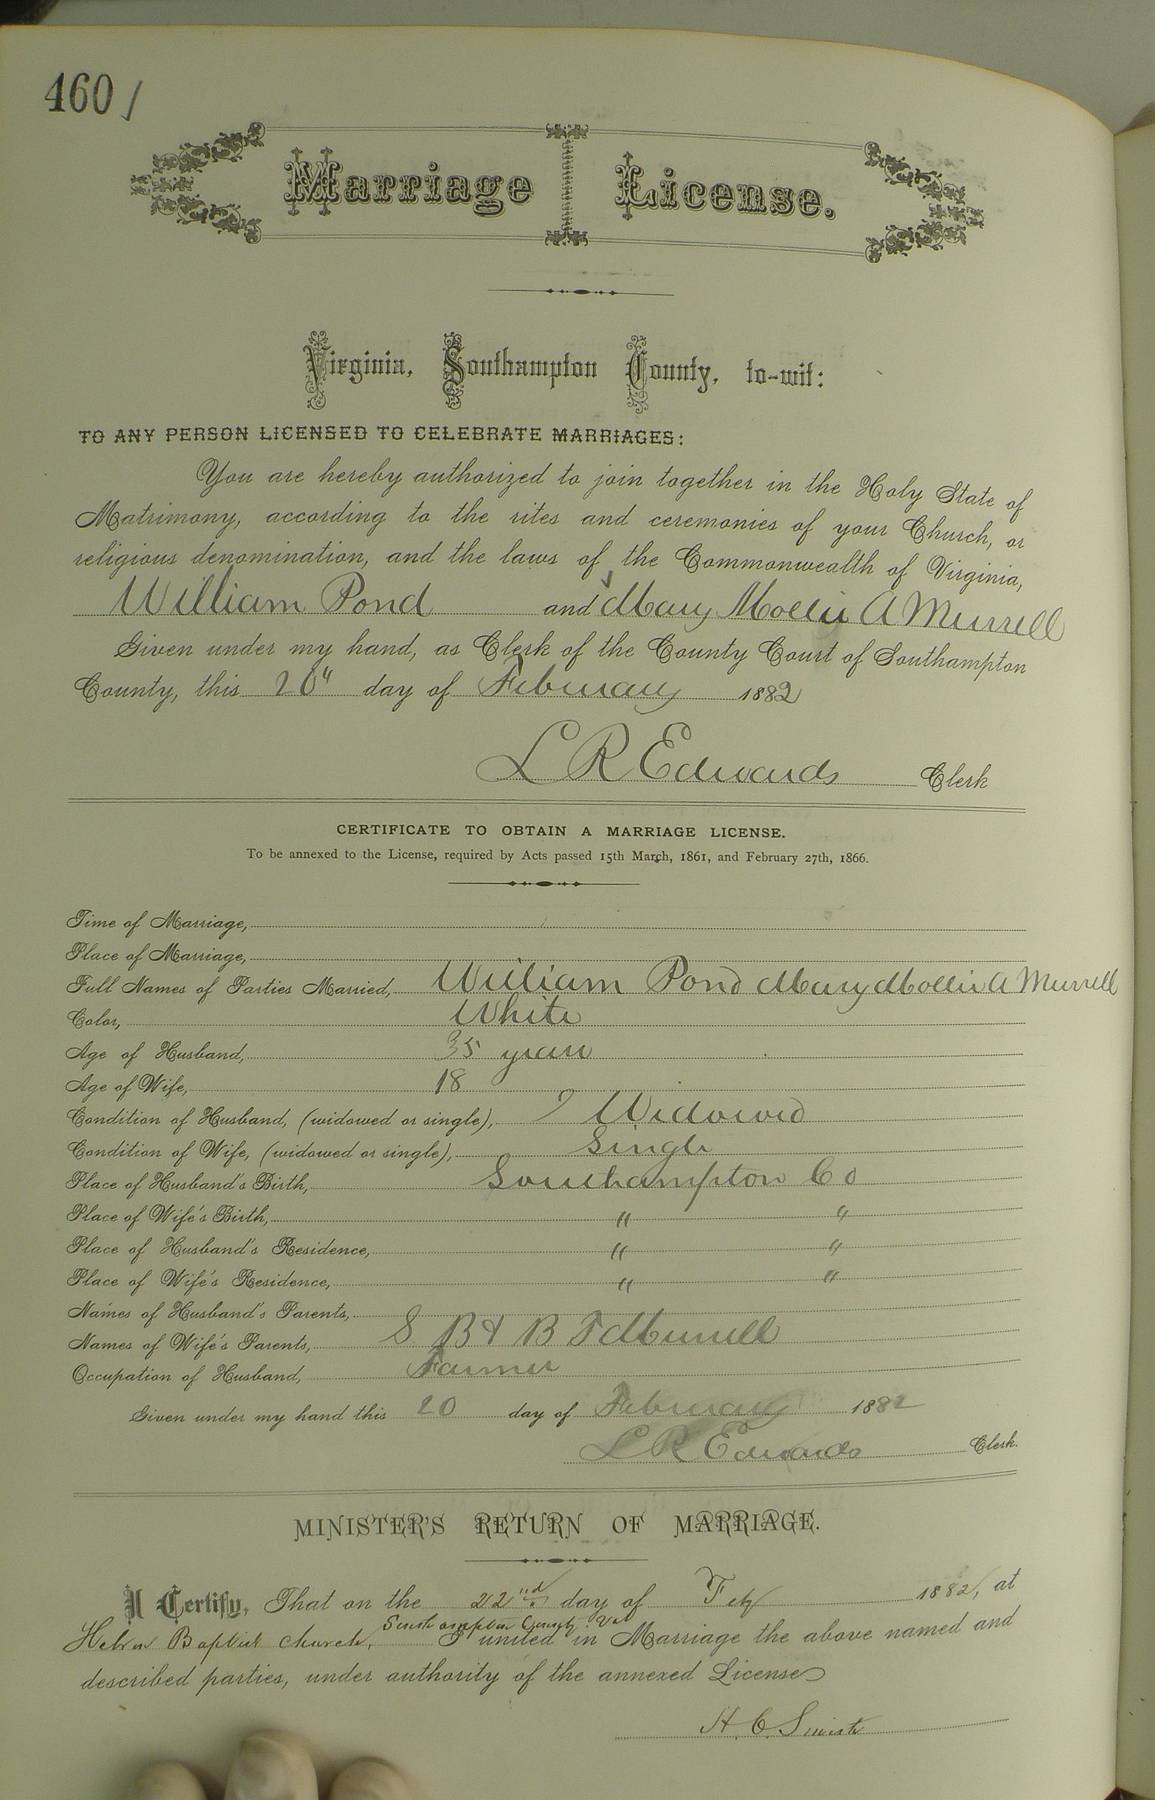 460/
Marriage License.
Virginia, Southampton County, to-wit:
TO ANY PERSON LICENSED TO CELEBRATE MARRIAGES:
You are hereby authorized to join together in the Holy State of
Matrimony, according to the rites and ceremonies of your Church, or
religious denomination, and the laws of the Commonwealth of Virginia,
William Pond and Mary Mollie A Murrell
Given under my hand, as Clerk of the County Court of Southampton
County, this 20" day of February 1882
L R Edwards Clerk
CERTIFICATE TO OBTAIN A MARRIAGE LICENSE.
To be annexed to the License, required by Acts passed 15th March, 1861, and February 27th, 1866.
Time of Marriage,
Place of Marriage,
Full Names of Parties Married, William Pond Mary Mollie A Murrell
Color, White
Age of Husband, 35 years
Age of Wife, 18
Condition of Husband, (widowed or single), Widowed
Condition of Wife, (widowed or single), Single
Place of Husband's Birth, Southampton Co
Place of Wife's Birth, " "
Place of Husband's Residence, " "
Place of Wife's Residence, " "
Names of Husband's Parents,
Names of Wife's Parents, S B & B F Murrell
Occupation of Husband, Farmer
Given under my hand this 20 day of February 1882
L R Edwards Clerk.
MINISTER'S RETURN OF MARRIAGE.
I Certify, That on the 22nd day of Feby 1882, at
Southampton County Va
Hebron Baptist Church, I united in Marriage the above named and
described parties, under authority of the annexed License
H. C.